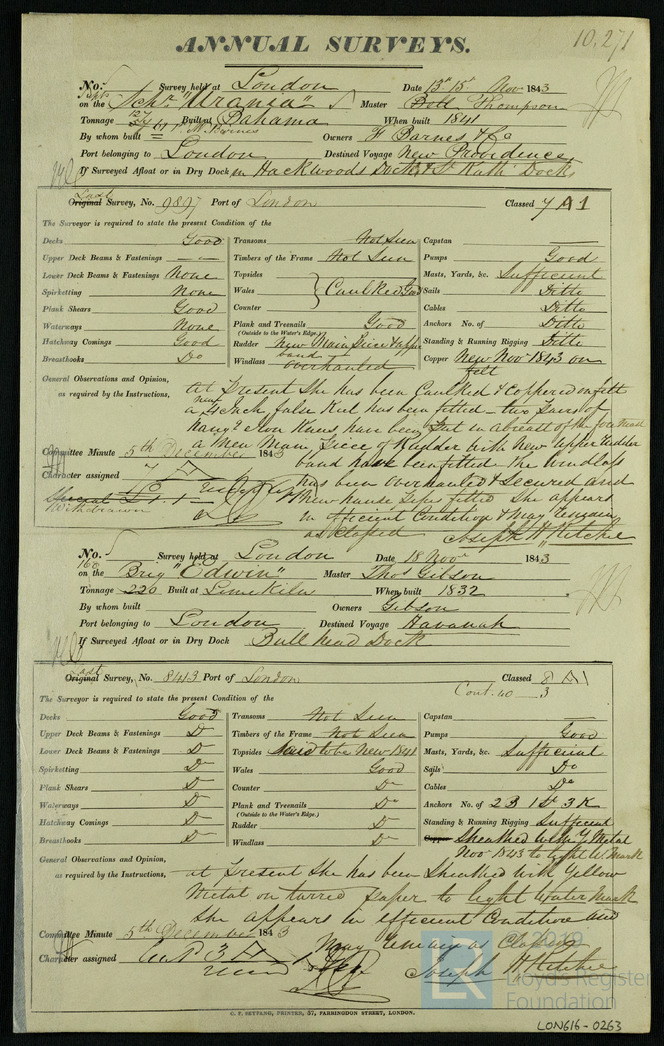 10,271
ANNUAL SURVEYS.
No. Survey held at London Date 13th 15 Nov 1843
on the Schr "Urania" Master Boll Thompson
Tonnage 127 Built at Bahama When built 1841
By whom built = Owners F Barnes & Co
Port belonging to London Destined Voyage New Providence
If Surveyed Afloat or in Dry Dock in Hackwoods Dock & St Kath Docks
Last
Original Survey, No. 9897 Port of London Classed 7 A 1
The Surveyor is required to state the present Condition of the
Decks Good Transoms Not Seen Capstan
Upper Deck Beams & Fastenings Timbers of the Frame Not Seen Pumps Good
Lower Deck Beams & Fastenings None Topsides Masts, Yards, &c. Sufficient
Spirketting None Wales Caulked Good Sails Ditto
Plank Shears Good Counter Cables Ditto
Waterways None Plank and Treenails Good Anchors No. of Ditto
(Outside to the Water's Edge.)
Hatchway Comings Good Rudder New Main Piece & upper band Standing & Running Rigging Ditto
Breasthooks Do Windlass overhauled Copper New Nov 1843 on felt
General Observations and Opinion,
as required by the Instructions,
At Present She has been Caulked & Coppered on felt
a new 4 Inch false Keel has been fitted two pairs of
hang? Iron Knees have been put in abreast of the fore Mast
a New Main Piece of Rudder with New upper Rudder
band have been fitted the windlass
has been overhauled & Secured and
New hawse pipes fitted She appears
in efficient Condition & may remain
as Classed Joseph H Ritchie
Committee Minute 5th December 1843
Character assigned
Withdrawn
No. Survey held at London Date 18 Nov 1843
on the Brig "Edwin" Master Thos Gibson
Tonnage 220 Built at Limekilns When built 1832
By whom built Owners Gibson
Port belonging to London Destined Voyage Havanah
If Surveyed Afloat or in Dry Dock Bull head Dock
Last
Original Survey, No. 8413 Port of London Classed 8 A 1
Cont. 40 3
The Surveyor is required to state the present Condition of the
Decks Good Transoms Not Seen Capstan
Upper Deck Beams & Fastenings Do Timbers of the Frame Not Seen Pumps Good
Lower Deck Beams & Fastenings Do Topsides said to be New 1841 Masts, Yards, &c. Sufficient
Spirketting Do Wales Good Sails Do
Plank Shears Do Counter Do Cables Do
Waterways Do Plank and Treenails Do Anchors No. of 2 B 1 St 3 K
(Outside to the Water's Edge.)
Hatchway Comings Do Rudder Do Standing & Running Rigging Sufficient
Breasthooks Do Windlass Do Copper Sheathed with Y Metal
Nov 1843 to light W Mark
General Observations and Opinion,
as required by the Instructions,
At Present She has been Sheathed with Yellow
Metal on tarred paper to light Water Mark
She appears in efficient Condition and
may remain as Classed
Joseph H Ritchie
Committee Minute 5th December 1843
Character assigned
C. F. SEYFANG, PRINTER, 57, FARRINGDON STREET, LONDON.
© 2019
Lloyd's Register
Foundation
LON616-0263